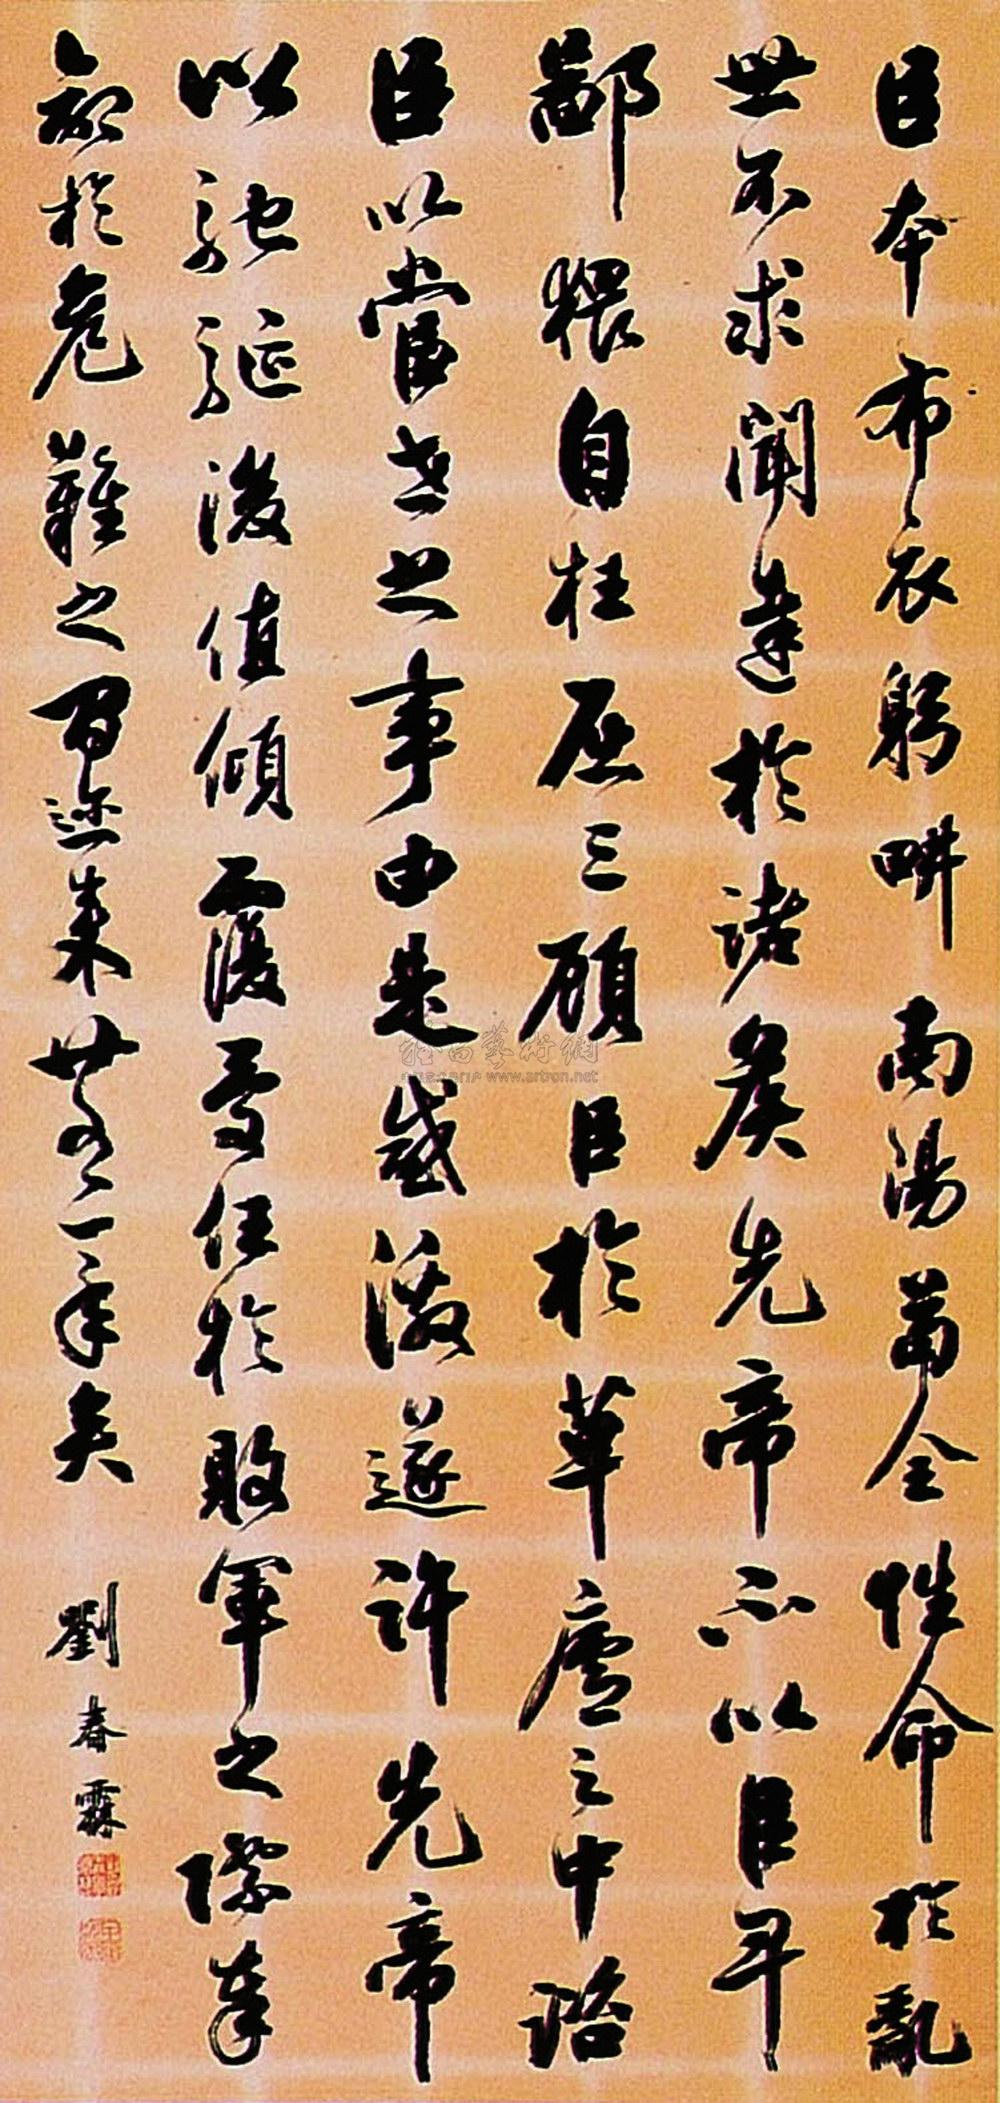 臣本布衣躬畊南陽苟全性命於亂
世不求聞達於諸矦先帝不以臣卑
鄙猥自枉屈三顧臣於草廬之中諮
臣以當世之事由是感激遂許先帝
以馳驅後值傾覆受任於敗軍之際奉
命於危難之間迩来廿有一年矣
劉春霖
雅昌藝術網
www.artron.net